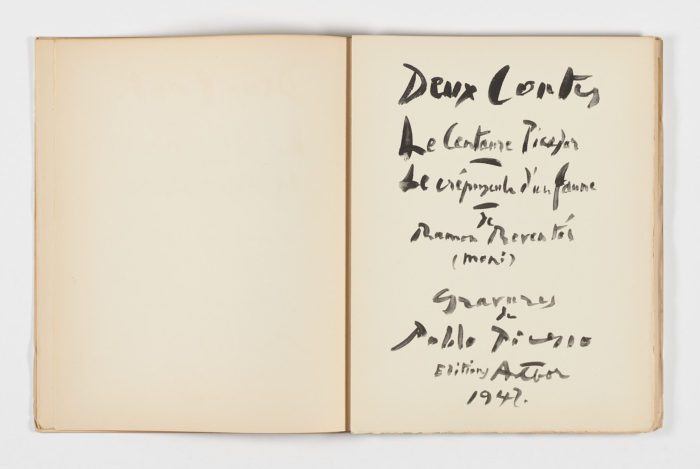 Deux Contes
Le Centaure Picador
Le crépuscule d'un faune
de
Ramon Reventós
(Moni)
Gravures
de
Pablo Picasso
Editions Albor
1947.